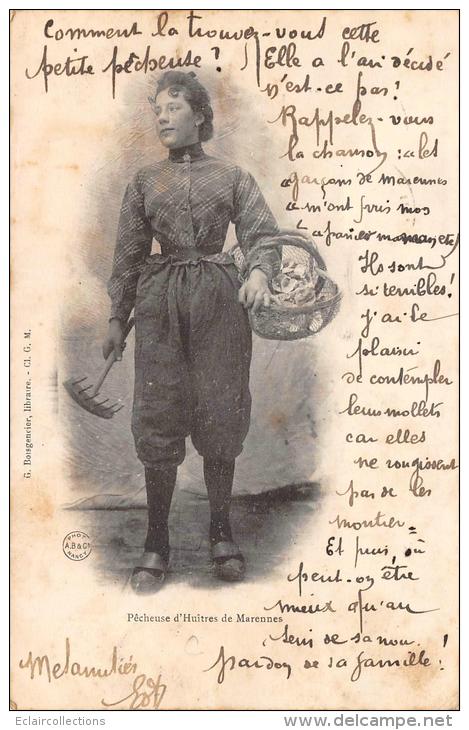 Comment la trouvez-vous cette
petite pêcheuse ?
Elle a l'air décidé
n'est-ce pas !
Rappelez-vous
la chanson : « les
« garçons de Marennes
« m'ont pris mos
« panier
Ils sont
si terribles !
J'ai le
plaisir
de contempler
leurs mollets
car elles
ne rougissent
pas de les
montrer =
Et puis, où
peut-on être
mieux qu'au
sein de sa nou.
pardon de sa famille !
G. Boisgencier, libraire. - Cl. G. M.
PHOT
A.B & Cie
NANCY
Pêcheuse d'Huîtres de Marennes
Mes amitiés
Eclaircollections
www.delcampe.net